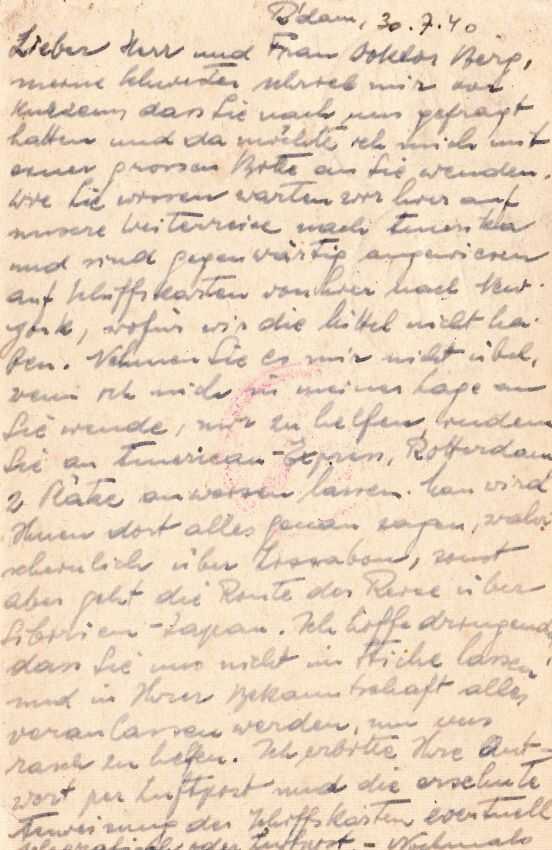 R'dam, 30.7.40
Lieber Herr und Frau Doktor Berg,
meine Schwester schrieb mir vor
kurzem, dass Sie nach uns gefragt
hatten und da möchte ich mich mit
einer grossen Bitte an Sie wenden.
Wie Sie wissen warten wir hier auf
unsere Weiterreise nach Amerika
und sind gegenwärtig angewiesen
auf Schiffskarten von hier nach New-
york, wofür wir die Mittel nicht ha-
ben. Nehmen Sie es mir nicht übel,
wenn ich mich in meiner Lage an
Sie wende, mir zu helfen, indem
Sie an American-Express, Rotterdam
2 Plätze anweisen lassen. Man wird
Ihnen dort alles genau sagen, wahr-
scheinlich über Lissabon, sonst
aber geht die Route der Reise über
Sibirien-Japan. Ich hoffe dringend,
dass Sie uns nicht im Stiche lassen
und in Ihrer Bekanntschaft alles
veranlassen werden, um uns
rasch zu helfen. Ich erbitte Ihre Ant-
wort per Luftpost und die ersehnte
Anweisung der Schiffskarten eventuell
telegrafisch oder Luftpost - Nochmals